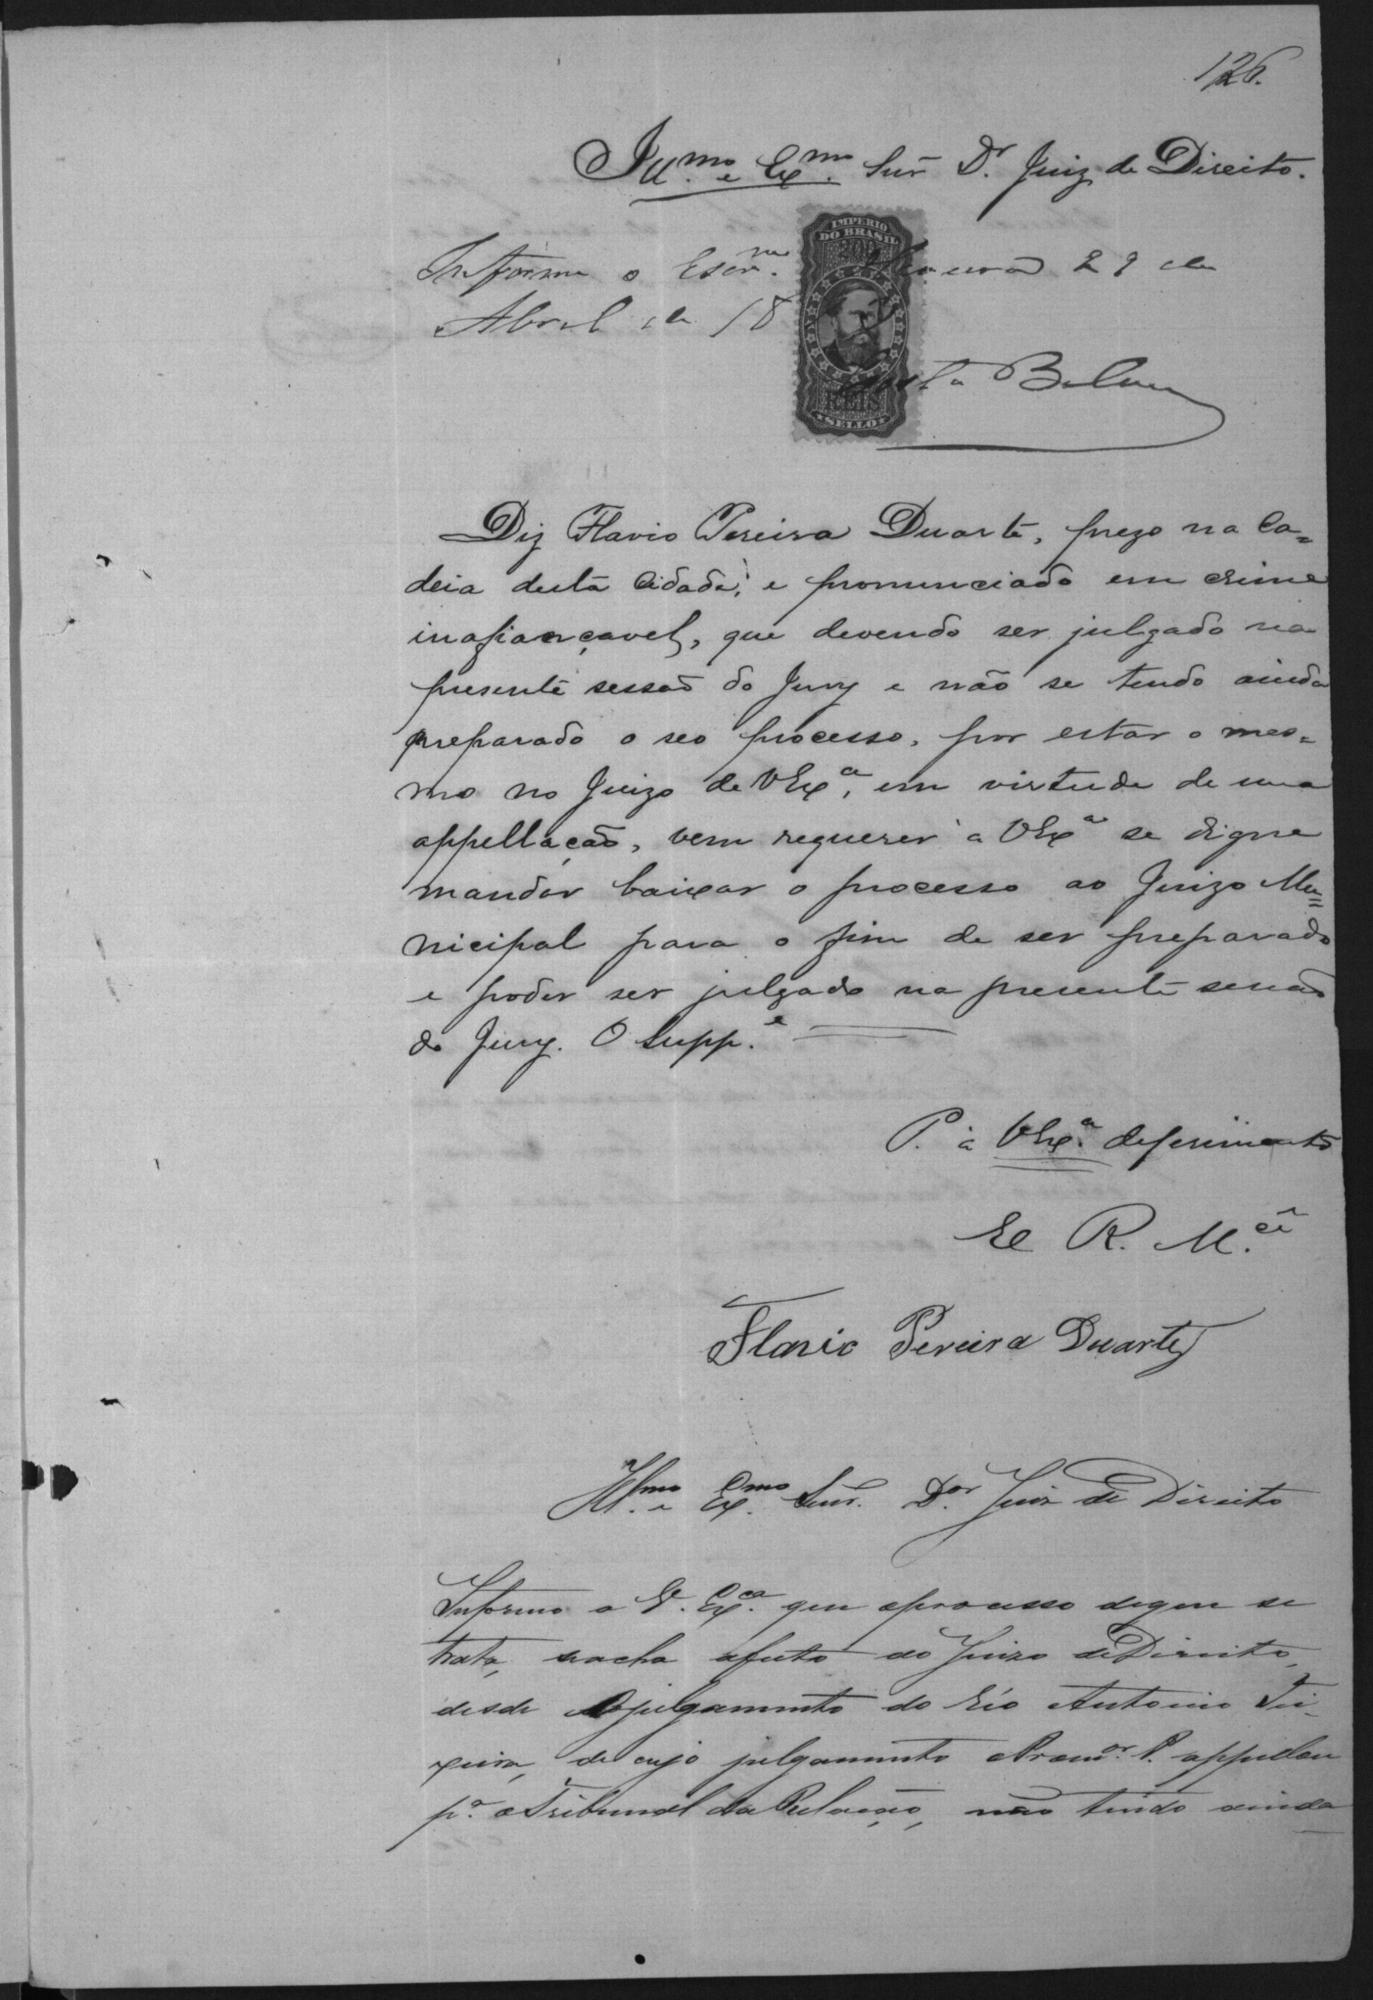 126.
Ill.mo e Ex.mo Snr Dr. Juiz de Direito.
IMPERIO
DO BRASIL
200
REIS
SELLO
Informe o Escr.m 29 de
Abril de 18
Costa
Diz Flavio Pereira Duarte, prezo na Ca=
deia desta Cidade, e pronunciado em crime
inafiançavel, que devendo ser julgado na
presente sessão do Jury e não se tendo ainda
preparado o seo processo, por estar o mes=
mo no Juizo de VEx.a, em virtude de uma
appellação, vem requerer a VEx.a se digne
mandar baixar o processo ao Juizo Mu=
nicipal para o fim de ser preparado
e poder ser julgado na presente sessão
do Jury. O Supp.e
P. a VEx.a deferimento
E R. M.cê
Flavio Pereira Duarte
Ill.mo e Ex.mo Snr. D.or Juiz de Direito
Informo a V. Ex.ca que oprocesso deque se
trata, seacha afecto ao Juizo de Direito,
desde ojulgamento do réo Antonio Tei-
xeira, de cujo julgamento oPromor. P. appellou
p.a o Tribunal da Relação, não tendo ainda